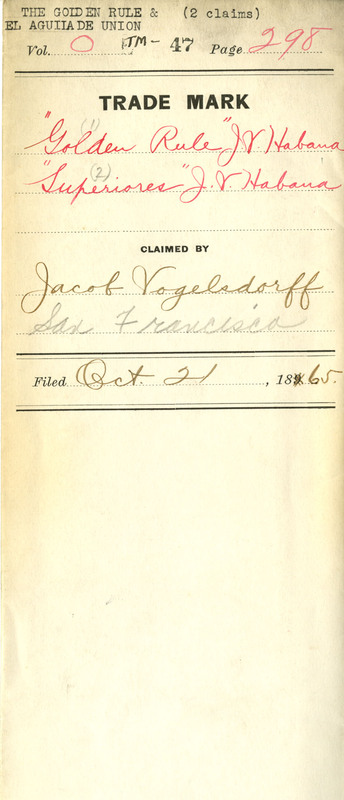 THE GOLDEN RULE & (2 claims)
EL AGUILA DE UNION
Vol. 0 TM- 47 Page 298
TRADE MARK
(1)
"Golden Rule" J.V. Habana
(2)
"Superiores" J.V. Habana
CLAIMED BY
Jacob Vogelsdorff
San Francisco
Filed Oct. 21, 1865.